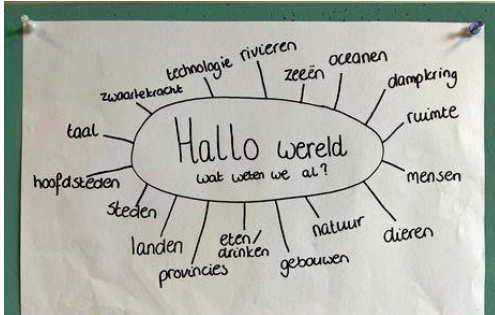 Hallo wereld
wat weten we al?
rivieren
zeeën
oceanen
dampkring
ruimte
mensen
dieren
natuur
gebouwen
eten/
drinken
provincies
landen
steden
hoofdsteden
taal
zwaartekracht
technologie